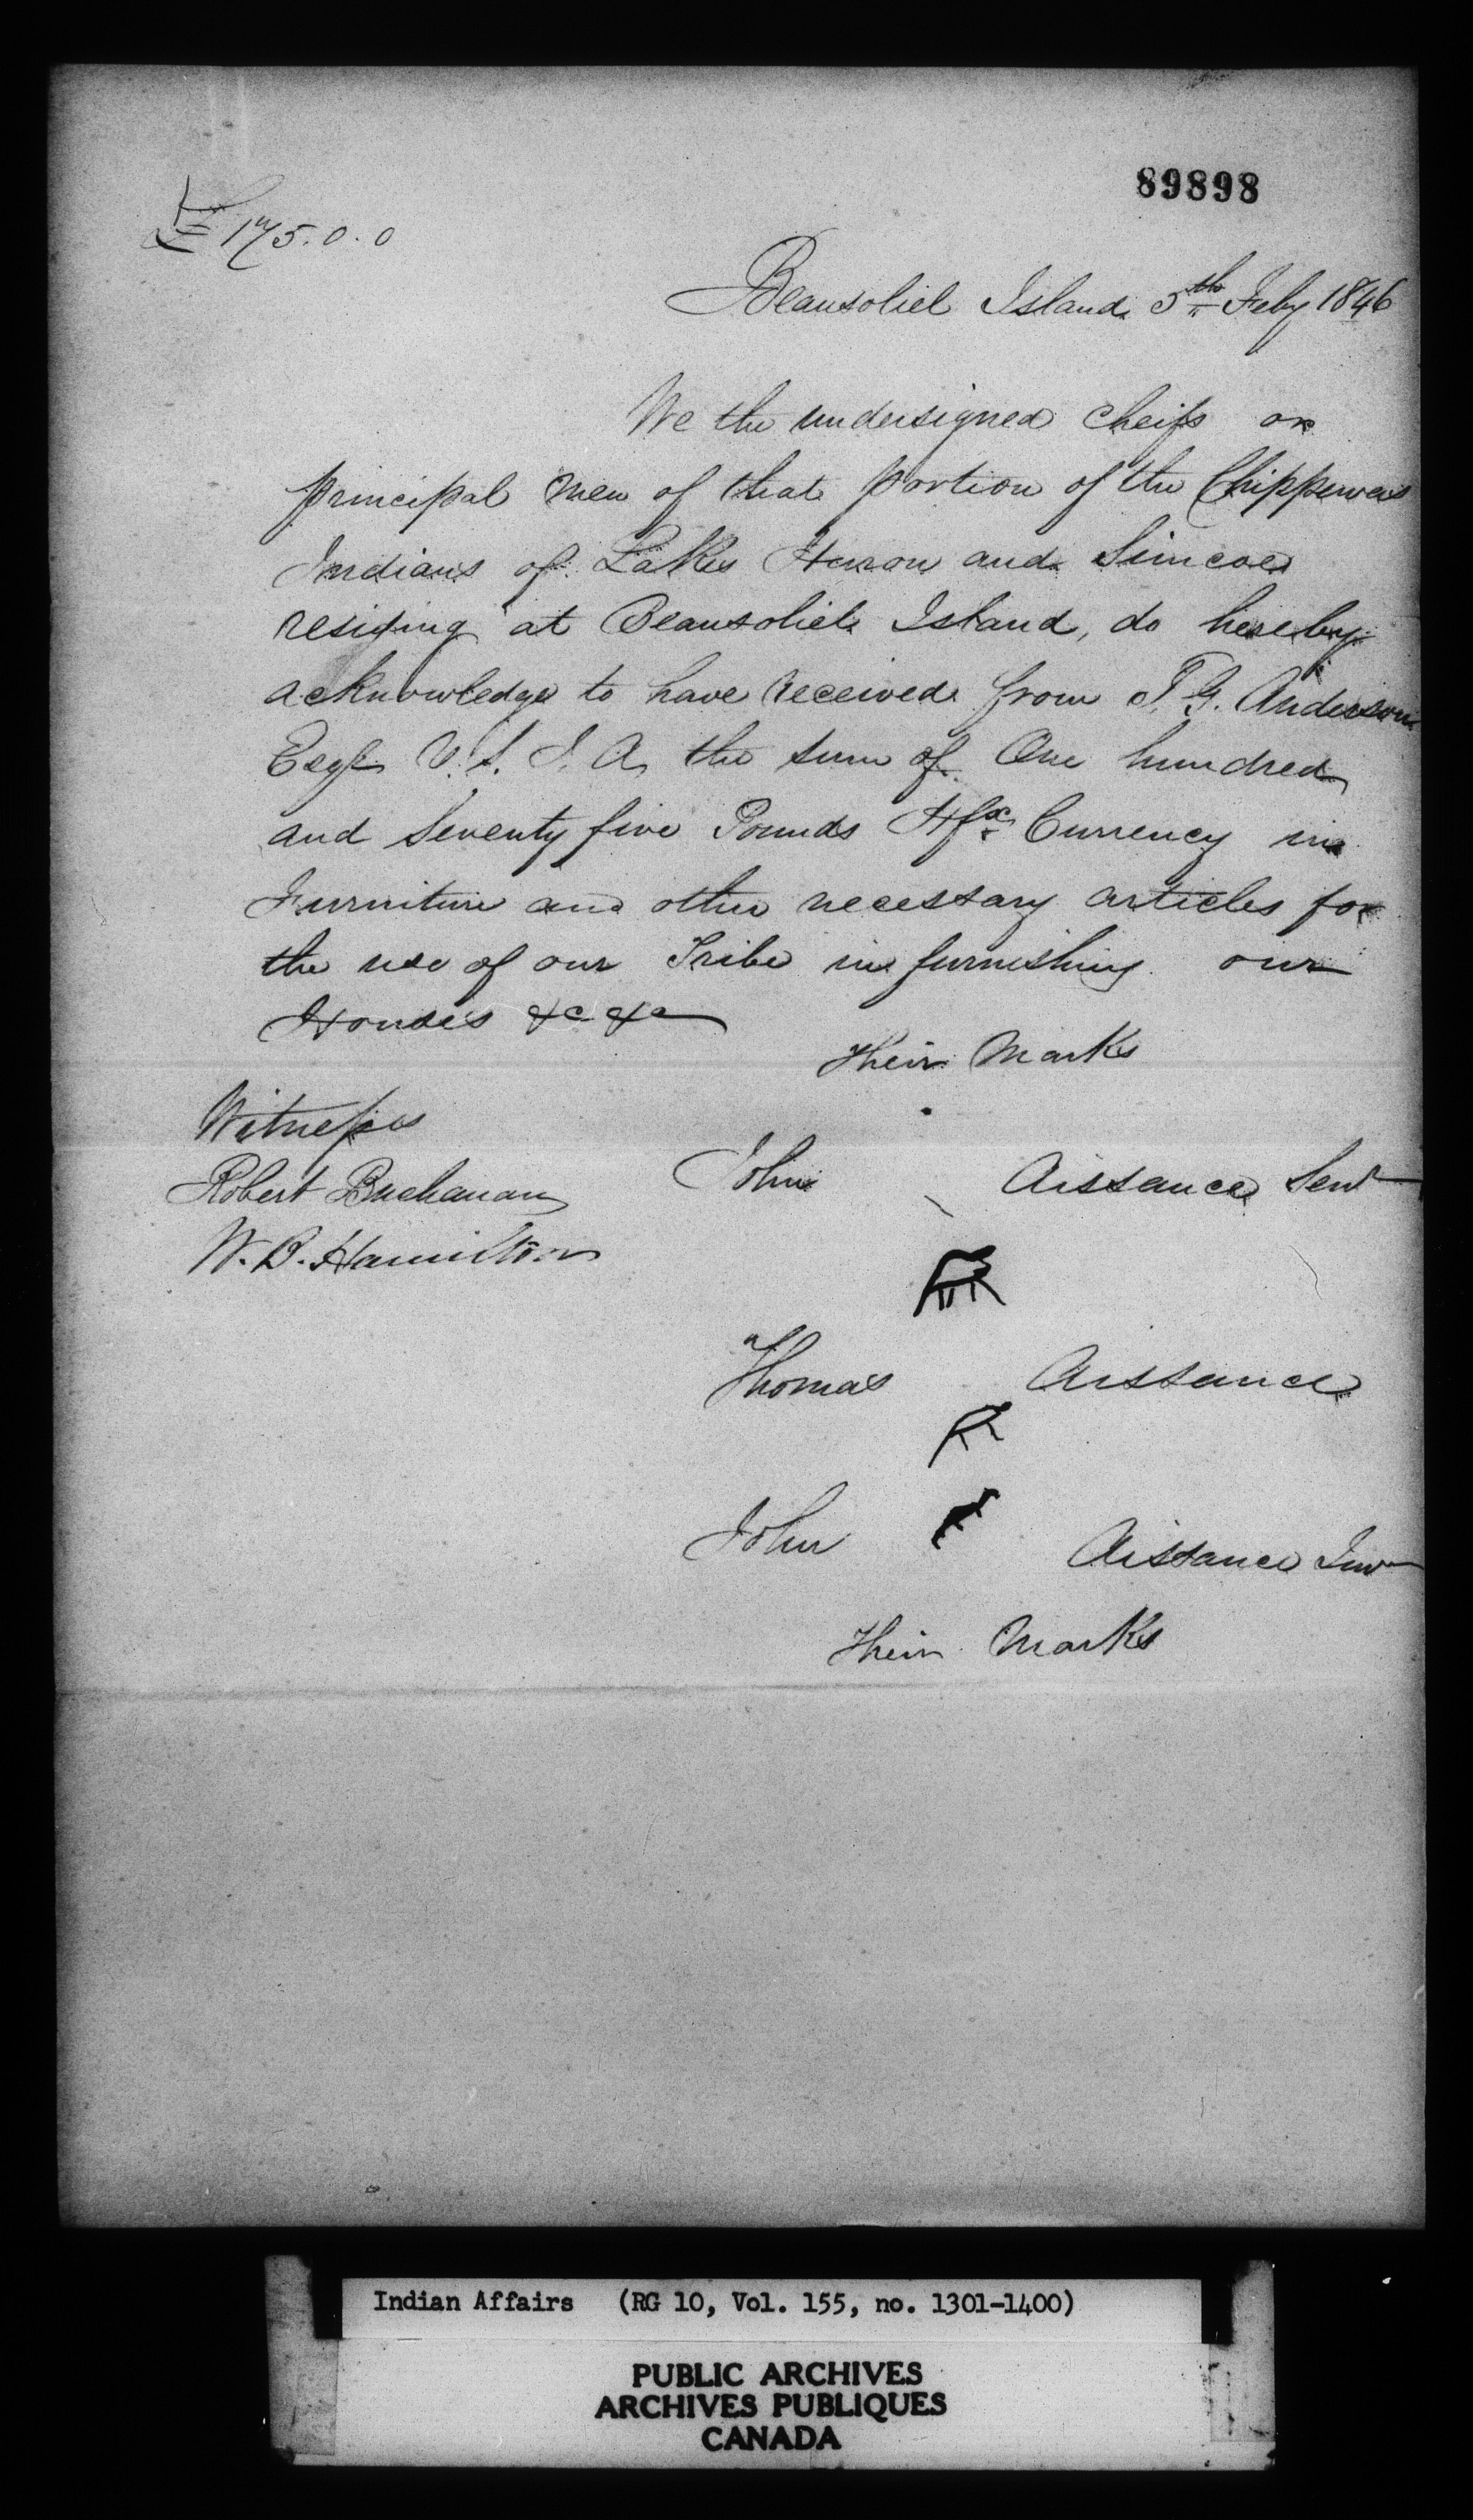 89898
£175.0.0
Beausoliel Island 5th Feby 1846
We the undersigned Cheifs or
principal men of that portion of the Chippewas
Indians of Lakes Huron and Simcoe
residing at Beausoliel Island, do hereby
acknowledge to have received from T. G. Anderson
Esqr V. S. I. A. the sum of One hundred
and Seventy five Pounds Hfx Currency in
Furniture and other necessary articles for
the use of our Tribe in furnishing our
Houses &c &c
Their Marks
Witnesses
Robert Buchanan
W. B. Hamilton
John Aissance Senr
Thomas Aissance
John Aissance Junr
Their Marks
Indian Affairs (RG 10, Vol. 155, no. 1301-1400)
PUBLIC ARCHIVES
ARCHIVES PUBLIQUES
CANADA